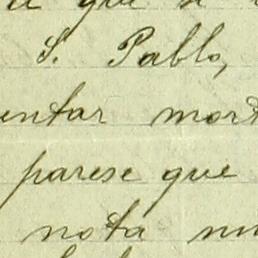 que
S. Pablo,
entar mort
parese que
nota